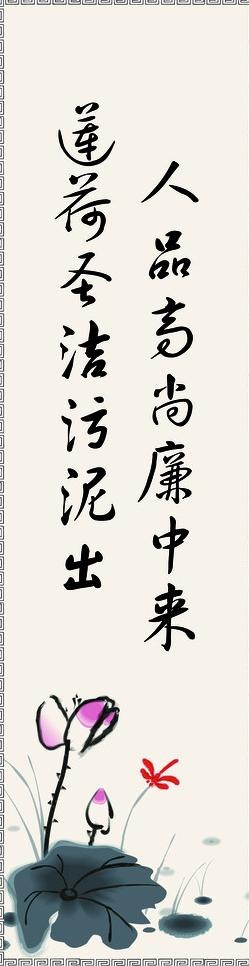 莲荷圣洁污泥出
人品高尚廉中来